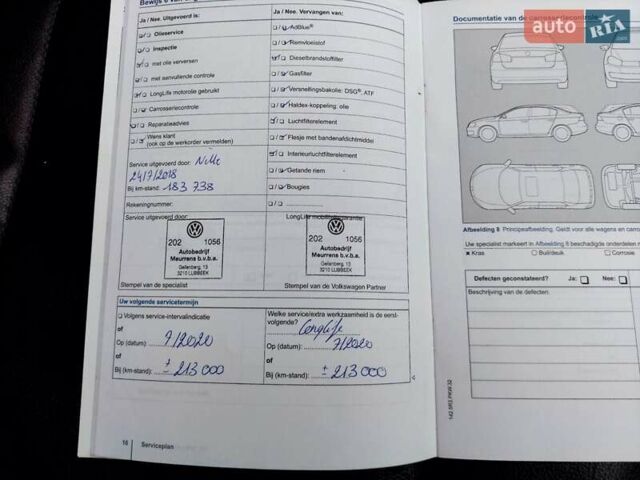 Ja / Nee. Uitgevoerd is:
Olieservice
Inspectie
met olie verversen
met aanvullende controle
LongLife motorolie gebruikt
Carrosseriecontrole
Reparatieadvies
Wens klant
(ook op de werkorder vermelden)
Service uitgevoerd door:
24/7/2018
Bij km-stand: 183 738
Rekeningnummer:
Ja / Nee. Vervangen van:
AdBlue®
Remvloeistof
Dieselbrandstoffilter
Gasfilter
Versnellingsbakolie: DSG®, ATF
Haldex-koppeling, olie
Luchtfilterelement
Flesje met bandenafdichtmiddel
Interieurluchtfilterelement
Getande riem
Bougies
Service uitgevoerd door:
202 1056
Autobedrijf
Meurrens b.v.b.a.
Gellenberg, 13
3210 LUBBEEK
Stempel van de specialist
LongLife mobiliteitsgarantie:
202 1056
Autobedrijf
Meurrens b.v.b.a.
Gellenberg, 13
3210 LUBBEEK
Stempel van de Volkswagen Partner
Uw volgende servicetermijn
Volgens service-intervalindicatie
of
Op (datum) 7/2020
of
Bij (km-stand): ± 213 000
Welke service/extra werkzaamheid is de eerst-
volgende? Longlife
Op (datum): 7/2020
of
Bij (km-stand): ± 213 000
16 Serviceplan
Documentatie van de carrosseriecontrole
auto RIA
Afbeelding 8 Principeafbeelding. Geldt voor alle wagens en carross
Uw specialist markeert in Afbeelding 8 beschadigde onderdelen
Kras Buil/deuk Corrosie
Defecten geconstateerd? Ja: Nee:
Beschrijving van de defecten: